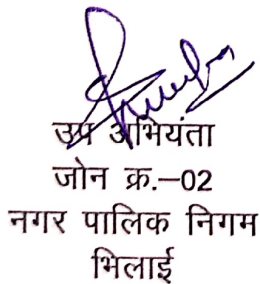 उप अभियंता
जोन क्र.–02
नगर पालिक निगम
भिलाई